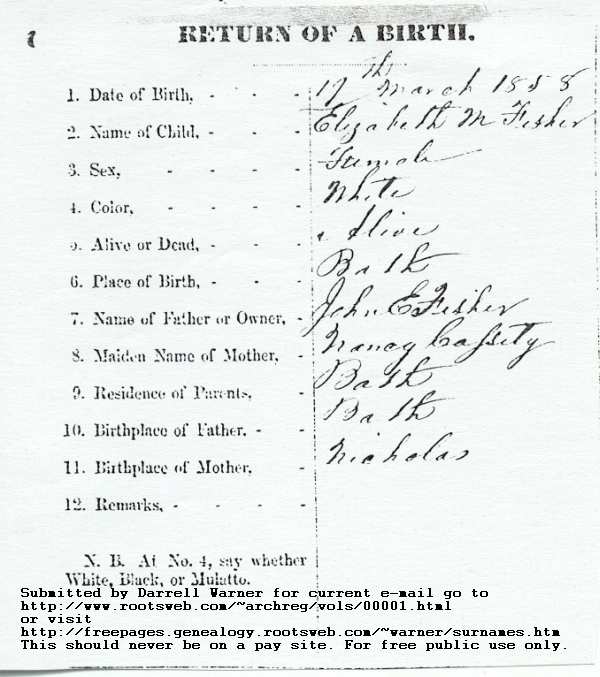 RETURN OF A BIRTH.
1. Date of Birth, - - - 17th March 1858
2. Name of Child, - - - Elizabeth M Fisher
3. Sex, - - - - Female
4. Color, - - - - White
5. Alive or Dead, - - - Alive
6. Place of Birth, - - - Bath
7. Name of Father or Owner, - John E Fisher
8. Maiden Name of Mother, - Nancy Cassity
9. Residence of Parents, - Bath
10. Birthplace of Father, - - Bath
11. Birthplace of Mother, - Nicholas
12. Remarks, - - - -
N. B. At No. 4, say whether
White, Black, or Mulatto.
Submitted by Darrell Warner for current e-mail go to
http://www.rootsweb.com/~archreg/vols/00001.html
or visit
http://freepages.genealogy.rootsweb.com/~warner/surnames.htm
This should never be on a pay site. For free public use only.